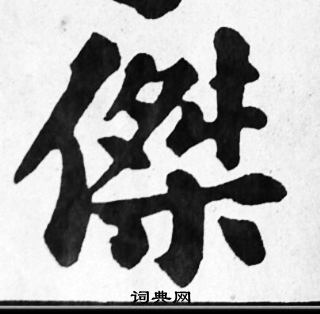 傑
词典网